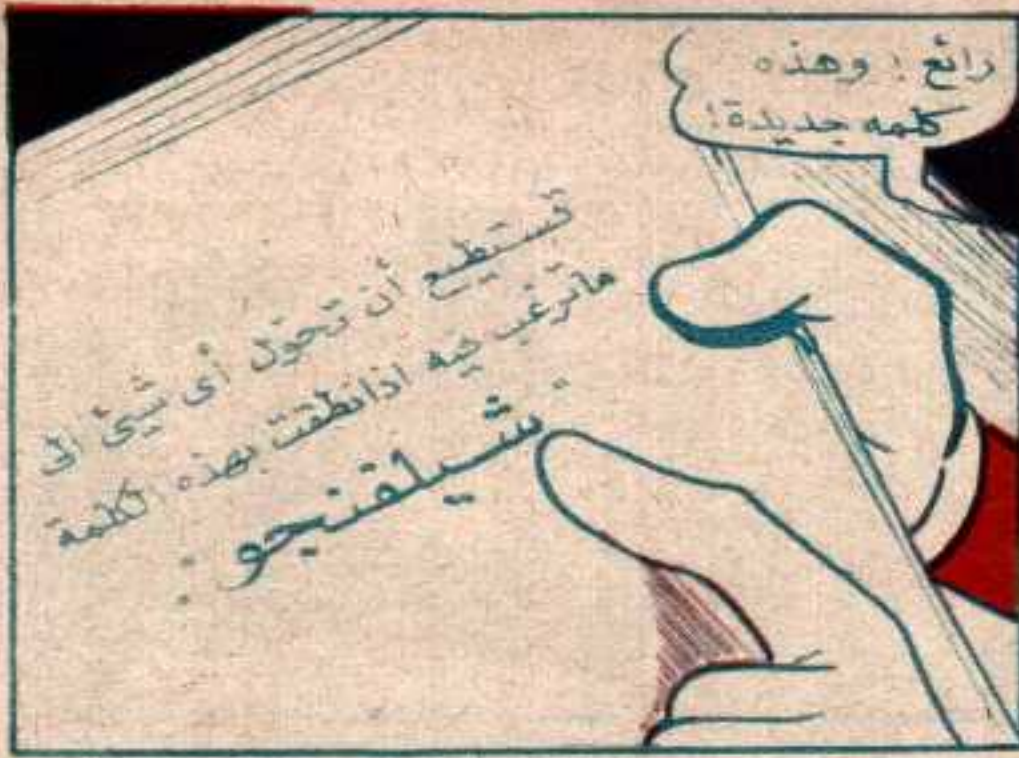 رائع ! وهذه
كلمه جديدة !
تستطيع أن تحول أى شيئ الى
ماترغب فيه اذانطقت بهذه الكلمة
" شيلقنيجو "